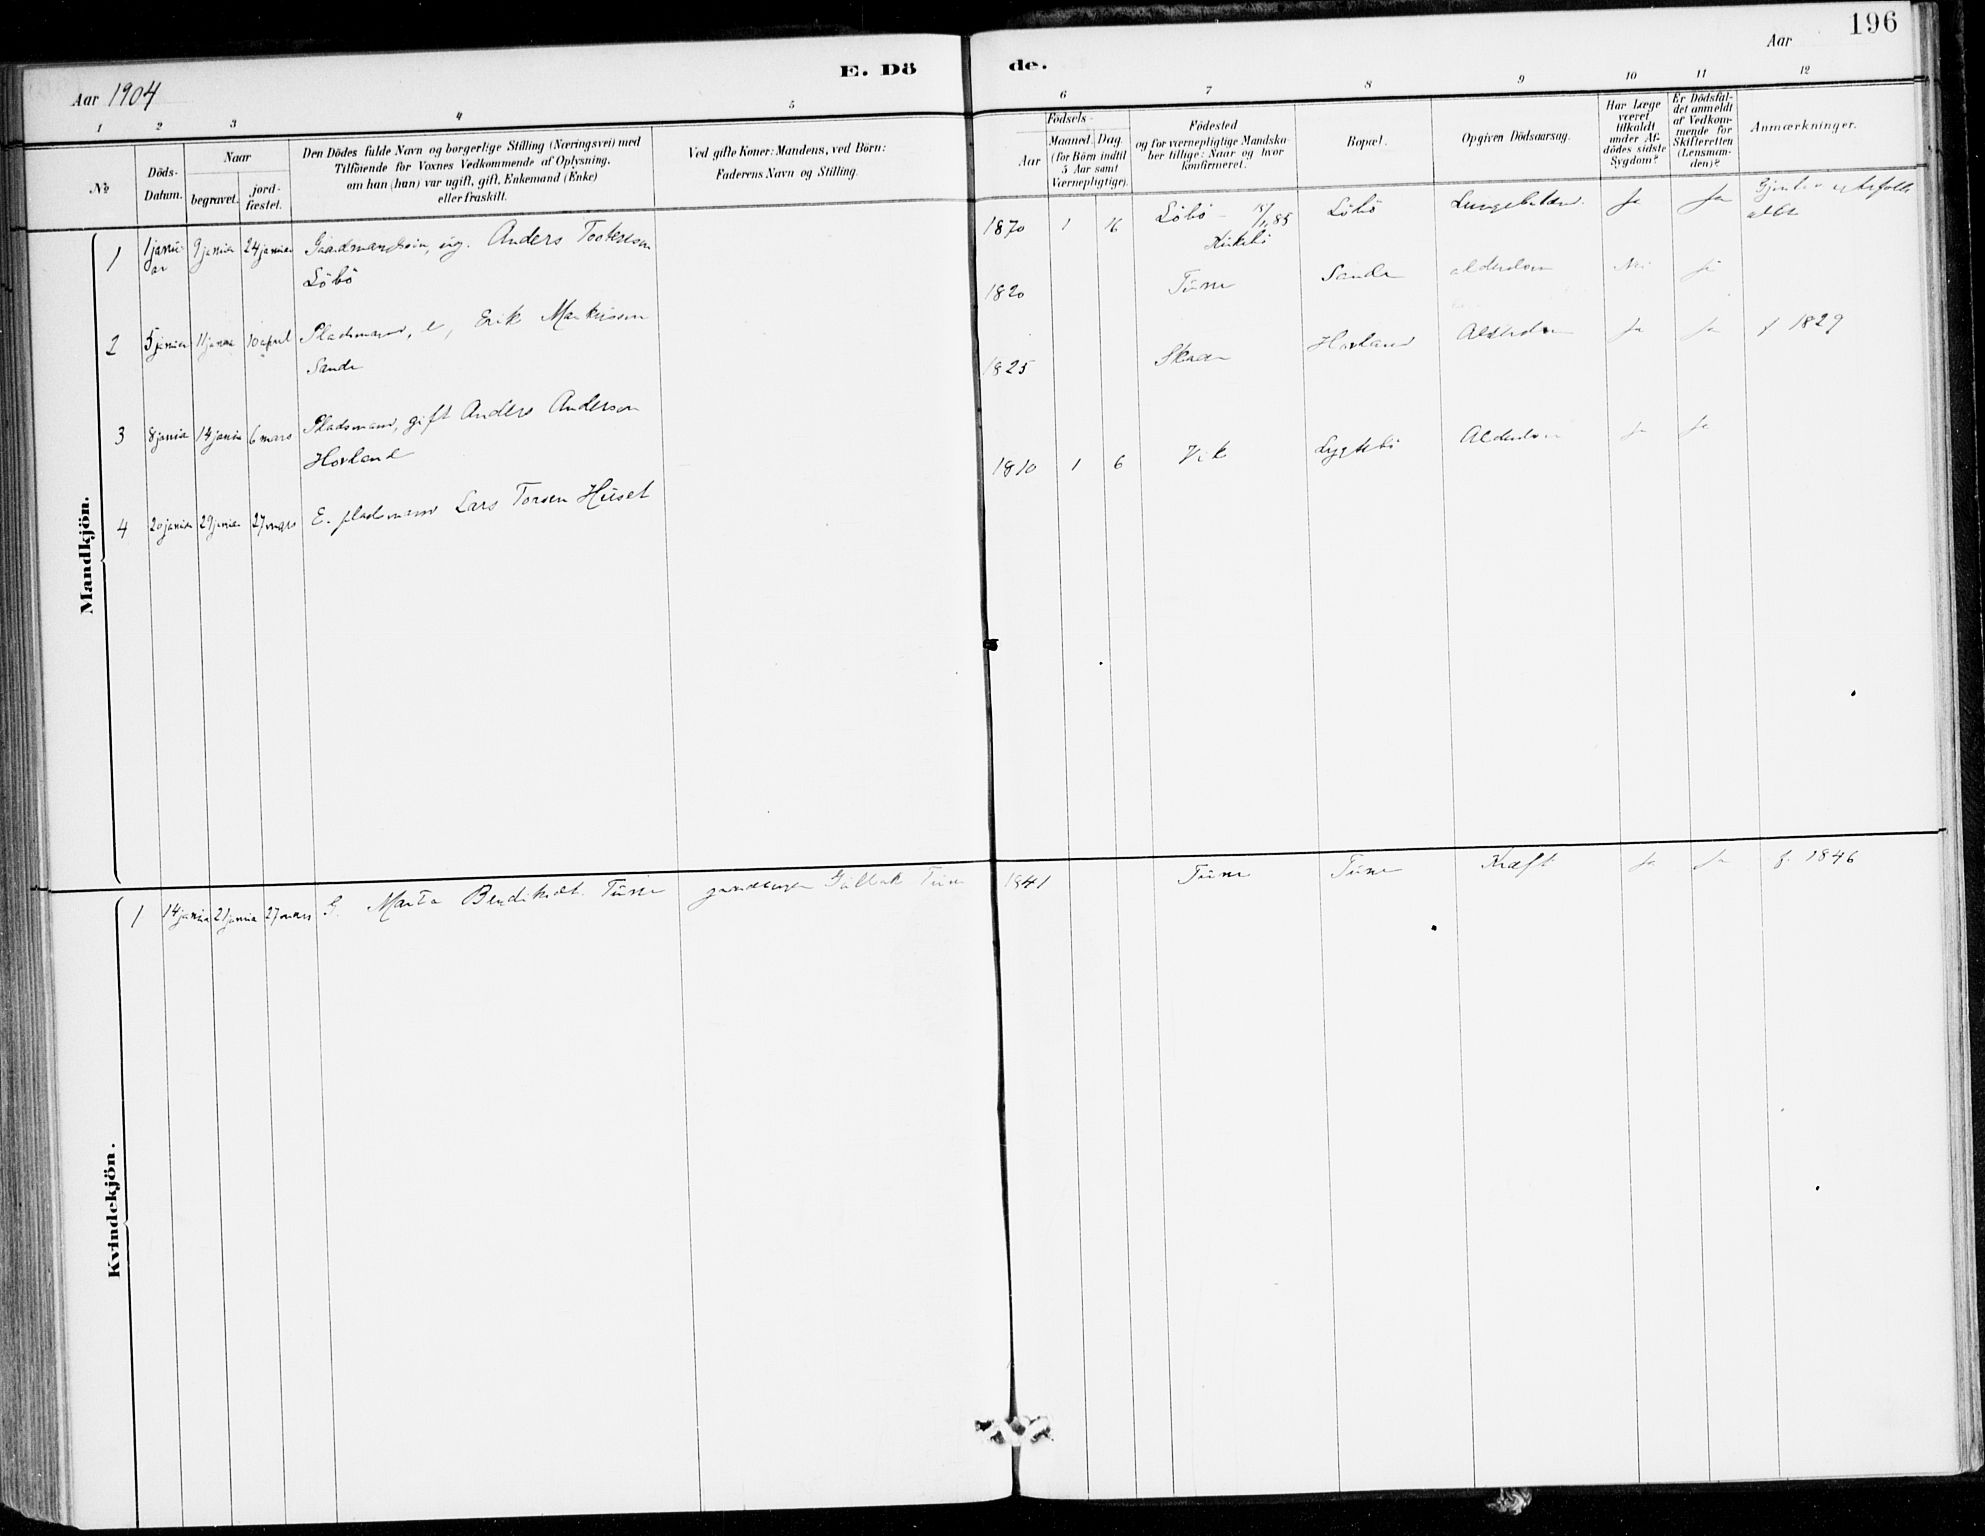 196
E. Dö de.
Aar 1904
Aar
1 2 3 4 5 6 7 8 9 10 11 12
No
Döds-
Datum.
Naar
begravet.
jord-
fæstet.
Den Dödes fulde Navn og borgerlige Stilling (Næringsvei) med
Tilföiende for Voxnes Vedkommende af Oplysning,
om han (hun) var ugift, gift, Enkemand (Enke)
eller fraskilt.
Ved gifte Koner: Mandens, ved Börn:
Faderens Navn og Stilling.
Födsels-
Aar
Maaned. Dag.
(for Börn indtil
5 Aar samt
Værnepligtige).
Födested
og for værnepligtige Mandska-
ber tillige: Naar og hvor
konfirmeret.
Bopæl.
Opgiven Dödsaarsag.
Har Læge
været
tilkaldt
under Af-
dödes sidste
Sygdom?
Er Dödsfal-
det anmeldt
af Vedkom-
mende for
Skifteretten
(Lensman-
den)?
Anmærkninger.
Mandkjön.
1 1 janu-
ar 9 januar 24 januar Gaardmandssön, ug. Anders
Löbö
1870 1 16 Löbö Löbö Ja Ja
2 5 januar 11 januar 10 april Pladsmand, e, Erik Markusson
Sande
1820 Tune Sande alderdom Nei ja
3 8 januar 14 januar 6 mars Pladsmand, gift Anders Anderson
Hovland
1825 Hovland Alderdom Ja Ja f 1829
4 20 januar 29 januar 27 mars E. pladsmand Lars Torsen Huset
1810 1 6 Vik Alderdom Ja Ja
Kvindekjön.
1 14 januar 21 januar 27 mars G. Marta Bendiksdt. Tune
1841 Tune Tune Kræft Ja Ja f. 1846